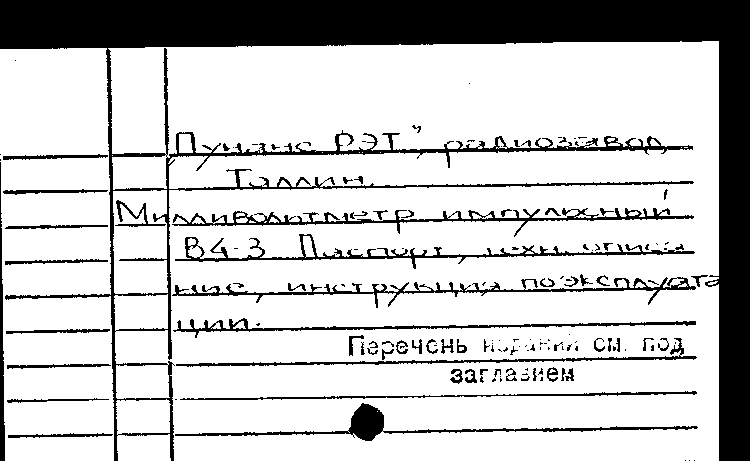 „Пунане РЭТ", радиозавод,
Таллин.
Милливольтметр импульсный
В4-3 Паспорт, техн. описа
ние, инструкция по эксплуата
ции.
Перечень изданий см. под
заглавием